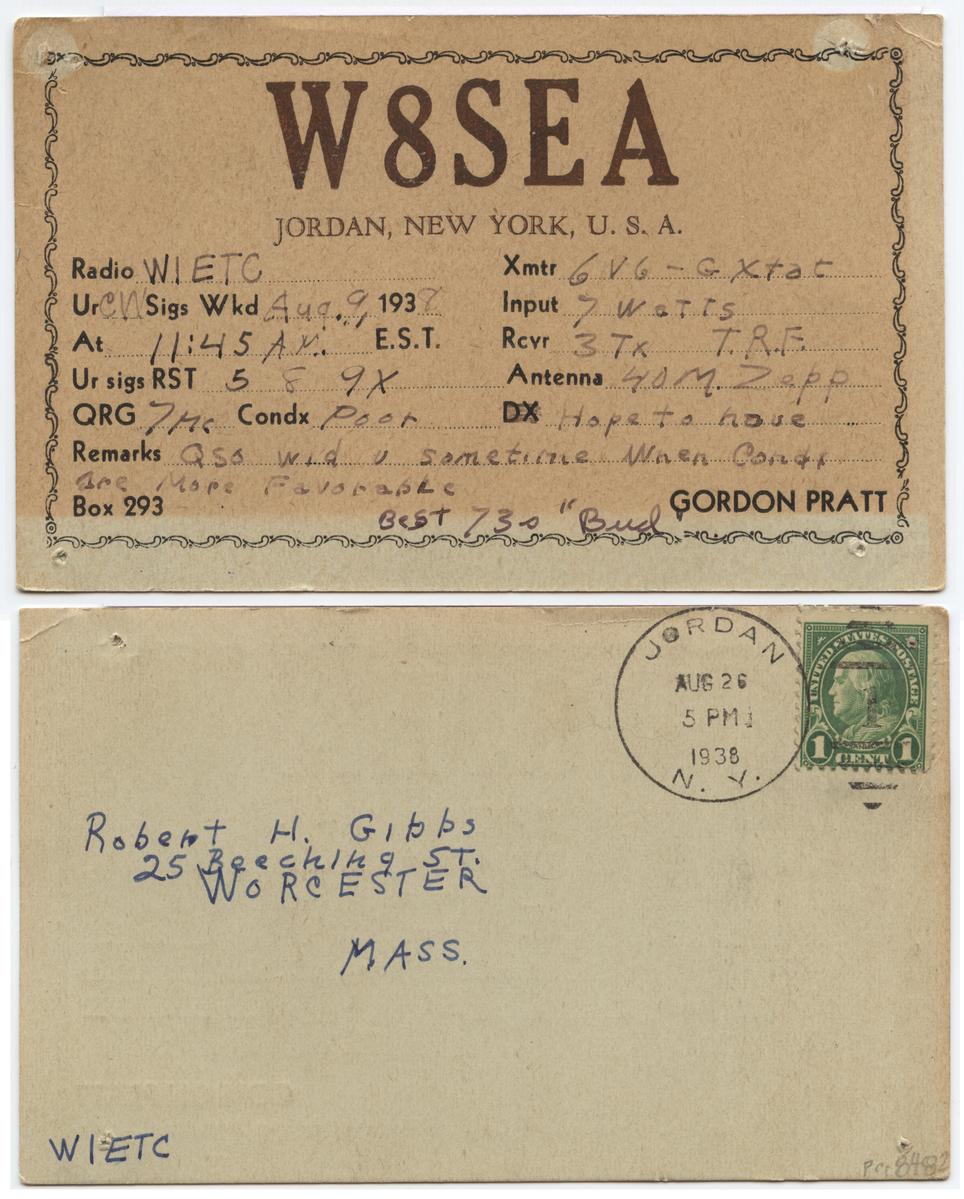 W8SEA
JORDAN, NEW YORK, U. S. A.
Radio W1ETC
Ur CW Sigs Wkd Aug. 9, 1938
At 11:45 A.M. E.S.T.
Ur sigs RST 5 8 9X
QRG 7Mc Condx Poor
Xmtr 6V6-G Xtal
Input 7 Watts
Rcvr 3 Tx T.R.F.
Antenna 40M. Zepp
DX Hope to have
Remarks QSO wid u sometime When Condx
are More Favorable
Box 293
Best 73s "Bud
GORDON PRATT
JORDAN
AUG 26
5 PM
1938
N. Y.
UNITED STATES POSTAGE
1 CENT 1
Robert H. Gibbs
25 Beeching ST.
WORCESTER
MASS.
W1ETC